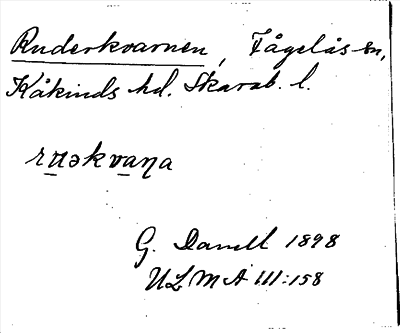 Ruderkvarnen, Fågelås sn,
Kåkinds hd. Skarab. l.
G. Danell 1898
ULMA 111:158